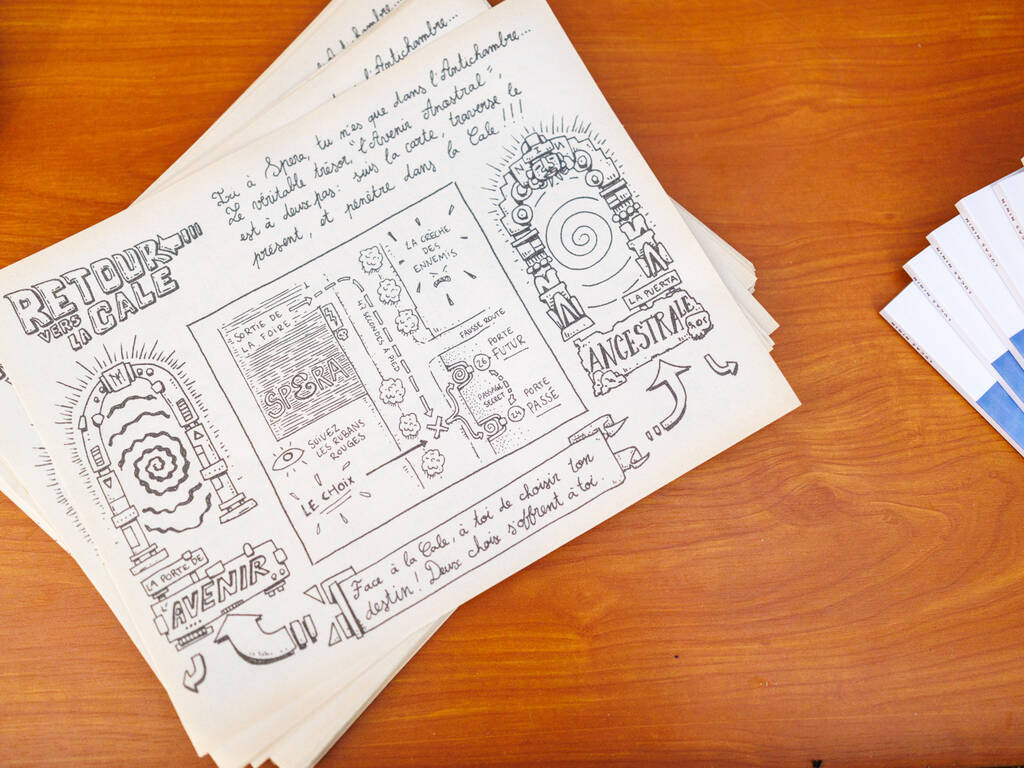 l'Antichambre...
Ici à Spera, tu n'es que dans l'Antichambre...
Le véritable trésor, "l'Avenir Anastral",
est à deux pas: suis la carte, traverse le
présent, et pénètre dans la Cale!!!
RETOUR
VERS
LA CALE
SORTIE DE
LA FOIRE
SPERA
LA CRÈCHE
DES
ENNEMIS
FAUSSE ROUTE
PORTE
FUTUR
26
PASSAGE
SECRET
24
PORTE
PASSE
SUIVEZ
LES RUBANS
ROUGES
LE CHOIX
LA PUERTA
ANCESTRAL
LA PORTE DE
L'AVENIR
Face à la Cale, à toi de choisir ton
destin! Deux choix s'offrent à toi...